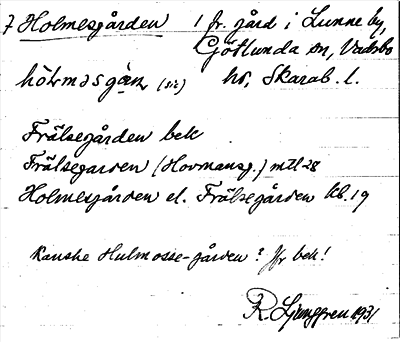 7 Holmesgården 1 fr. gård i Lunne by,
Götlunda sn, Vadsbo
hålmasgån (sic) hd, Skarab. l.
Frälsegården bek
Frälsegarden (Hovmansg.) mtl 28
Holmesgården el. Frälsegården kb. 19
Kanske Hulmosse-gården? Jfr bek!
R. Ljunggren 1931